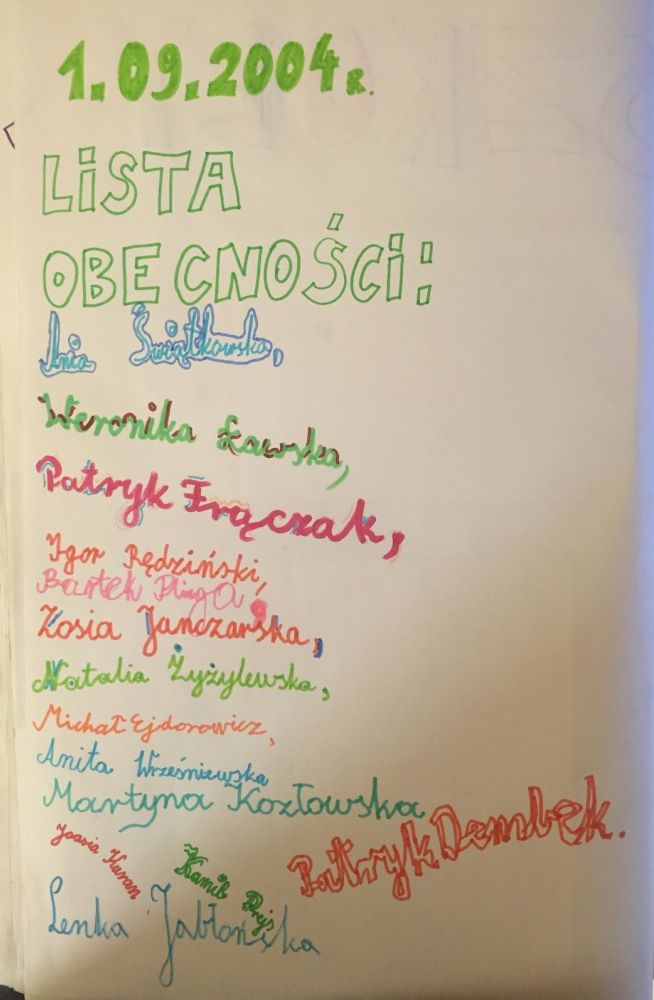 1.09.2004 r.
LiSTA
OBECNOŚCi:
Ania Świątkowska,
Weronika Ławska,
Patryk Frączak,
Igor Rędziński,
Bartek Plinga,
Zosia Janczarska,
Natalia Żyżylewska,
Michał Ejdorowicz,
Anita Wrześniewska
Martyna Kozłowska
Patryk Dembek.
Joasia Kuran
Kamil Pryś
Lenka Jabłońska